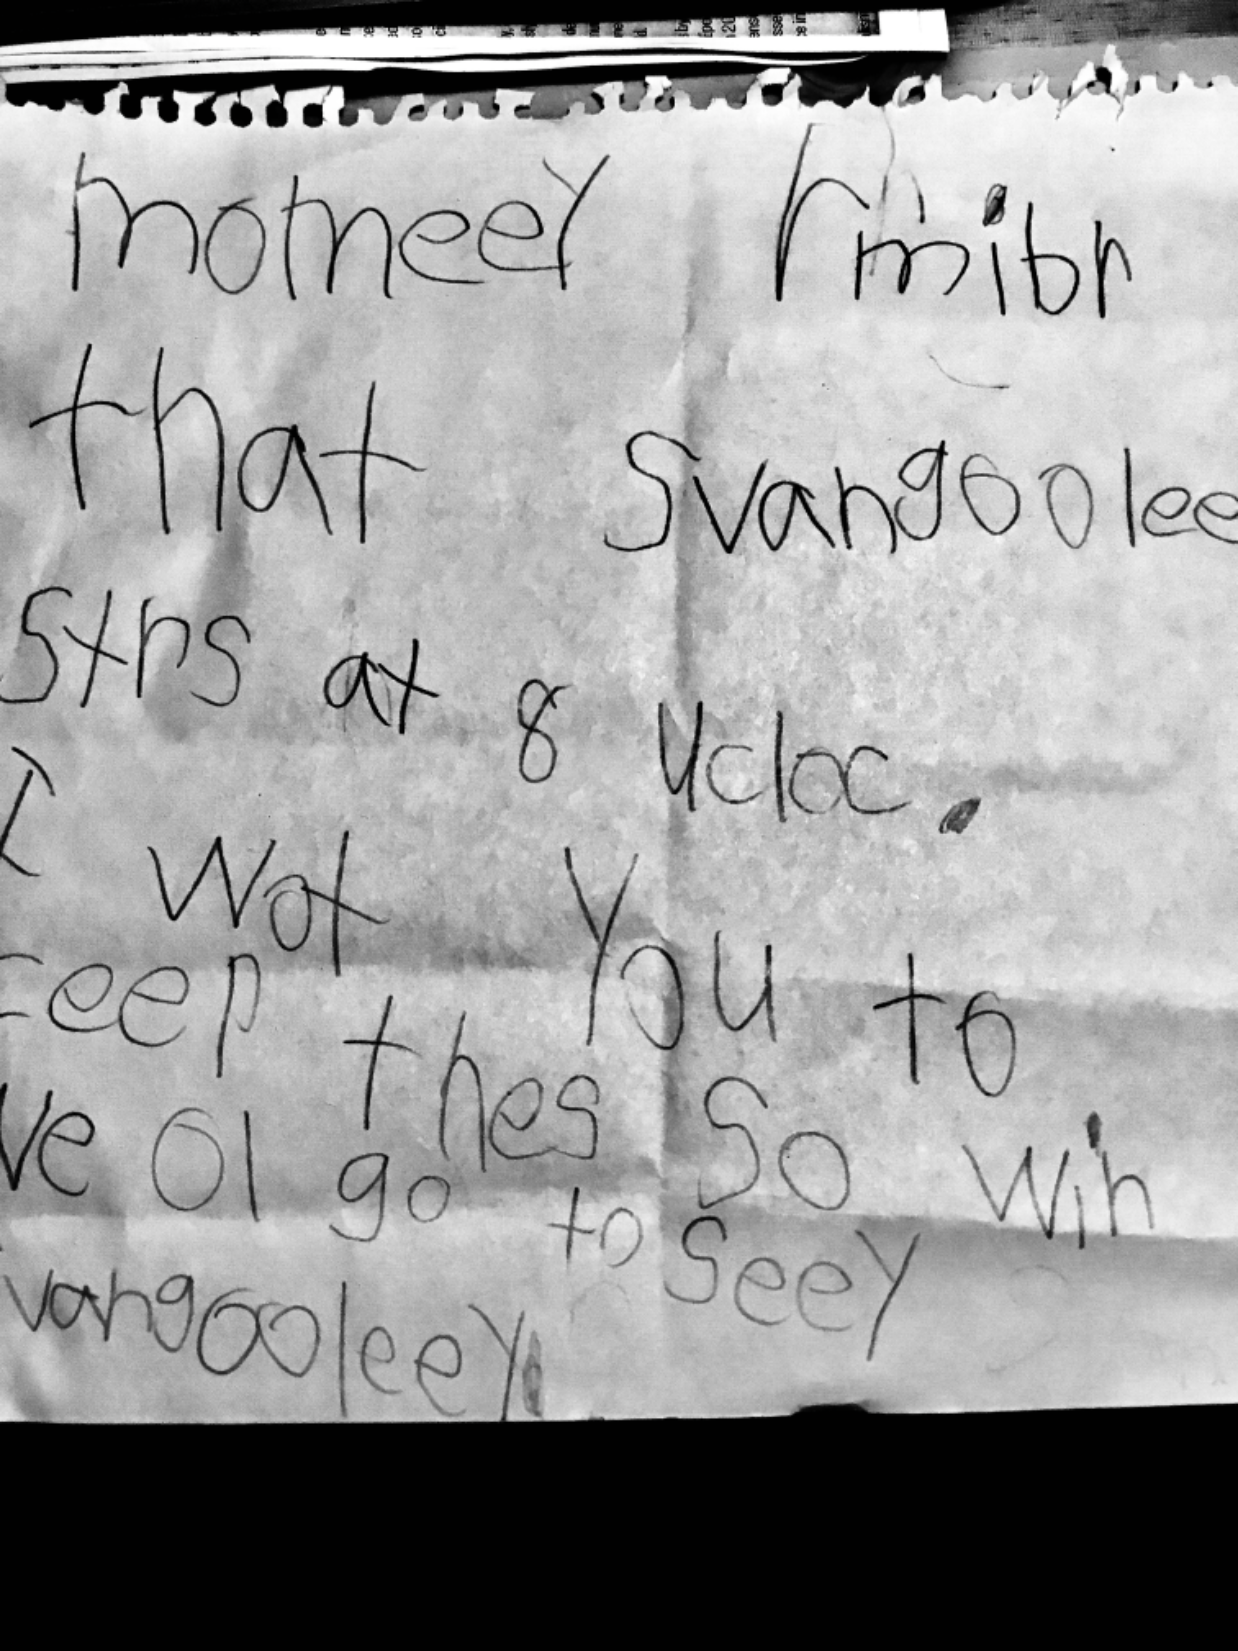 momeey rmibr
that Svangoolee
Strs at 8 ucloc.
I wot you to
ceep thes So win
we ol go to Seey
vangooleey.